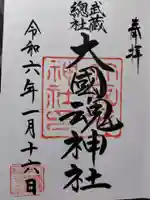 奉拝
武蔵
總社
大國魂神社
令和六年一月十六日